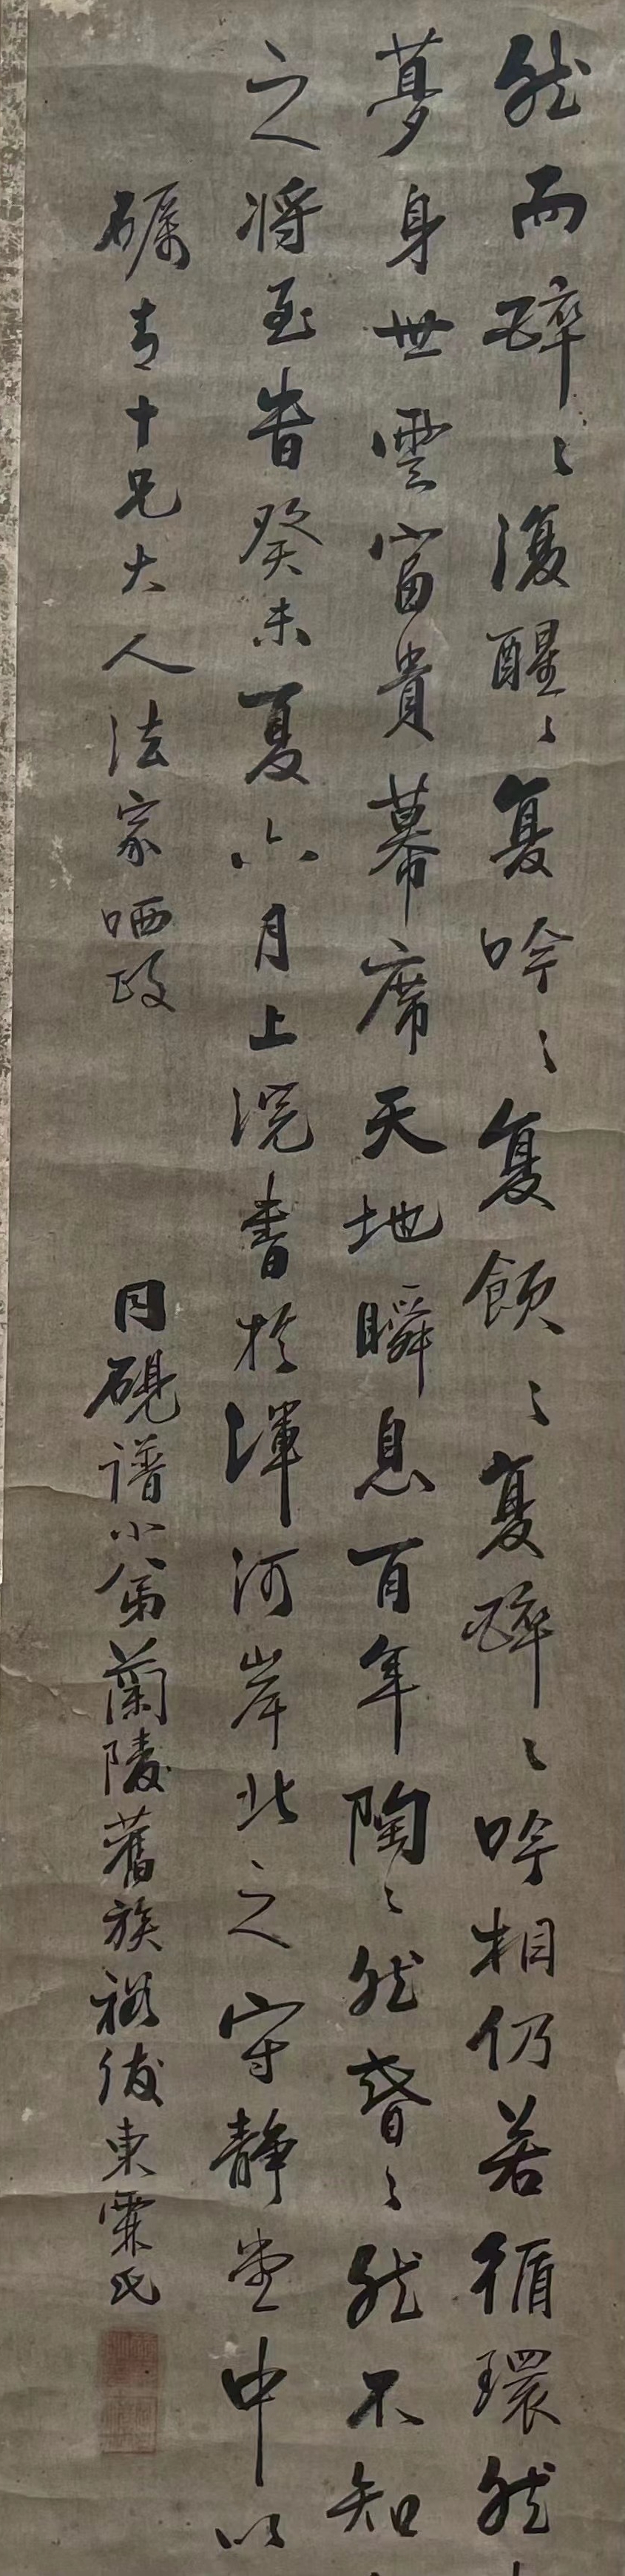 然而醉〻復醒〻复吟〻复飲〻复醉〻吟相仍若循環然
夢身世雲富貴幕席天地瞬息百年陶〻然昏〻然不知
之將至昔癸未夏六月上浣書於渾河岸北之守靜堂中以
礪青十兄大人法家哂政
同硯譜小弟蘭陵舊族裕後東霖氏